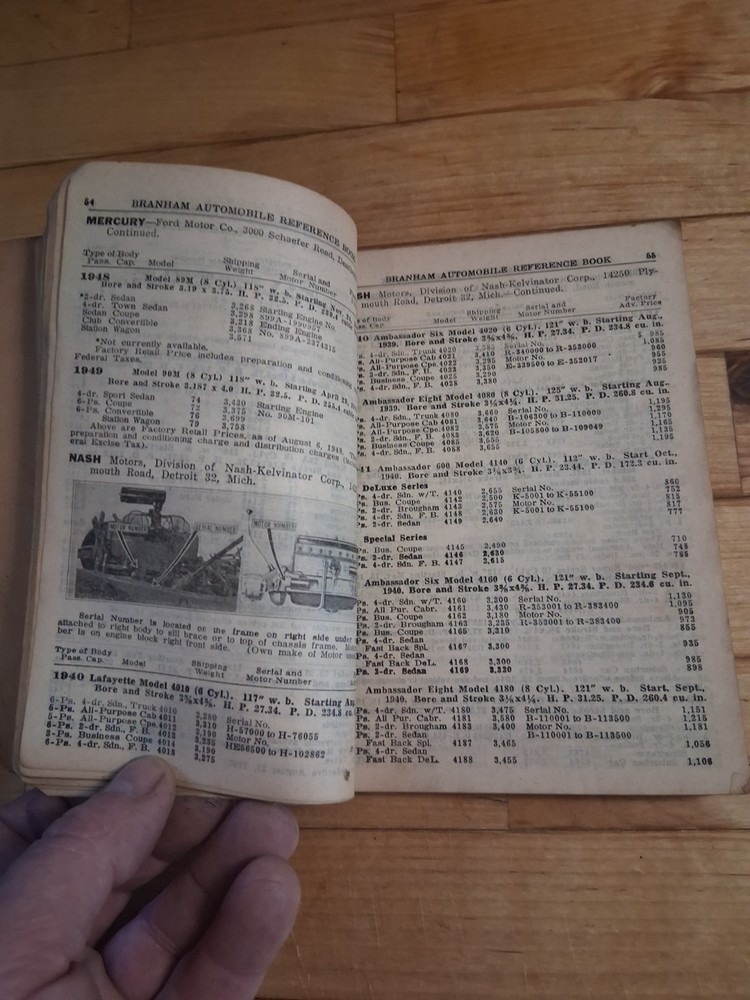 54 BRANHAM AUTOMOBILE REFERENCE BOOK
MERCURY—Ford Motor Co., 3000 Schaefer Road,
Continued.
Type of Body Shipping Serial and
Pass. Cap. Model Weight Motor Number
1948 Model 89M (8 Cyl.) 118" w. b. Starting
Bore and Stroke 3.19 x 3.75. H. P. 32.5. P. D.
*2-dr. Sedan
4-dr. Town Sedan 3,268 Starting Engine No.
Sedan Coupe 3,298 899A-1990957
Club Convertible 3,218 Ending Engine
Station Wagon 3,368 No. 899A-2374315
3,571
*Not currently available.
Factory Retail Price includes preparation and
Federal Taxes.
1949 Model 90M (8 Cyl.) 118" w. b. Starting April
Bore and Stroke 3.187 x 4.0 H. P. 32.5. P. D. 255.4
4-dr. Sport Sedan 74 3,420 Starting Engine
6-Ps. Coupe 72 3,375 No. 90M-101
6-Ps. Convertible 76 3,699
Station Wagon 79 3,758
Above are Factory Retail Prices, as of August 6, 1948.
preparation and conditioning charge and distribution charges
eral Excise Tax).
NASH Motors, Division of Nash-Kelvinator Corp.,
mouth Road, Detroit 32, Mich.
MOTOR NUMBER SERIAL NUMBER MOTOR NUMBER
Serial Number is located on the frame on right side under
attached to right body to sill brace or to top of chassis frame.
ber is on engine block right front side. (Own make of Motor
Type of Body Shipping Serial and
Pass. Cap. Model Weight Motor Number
1940 Lafayette Model 4010 (6 Cyl.). 117" w. b. Starting
Bore and Stroke 3⅜x4⅜. H. P. 27.34. P. D. 234.8
6-Ps. 4-dr. Sdn, Trunk 4010 3,280 Serial No.
5-Ps. All-Purpose Cab 4011 H-57000 to H-76055
5-Ps. All-Purpose Cpe 4012 Motor No.
6-Ps. 2-dr. Sdn, F. B. 4013 HE56500 to H-102862
3-Ps. Business Coupe 4014 3,190
6-Ps. 4-dr. Sdn, F. B. 4018 3,275
BRANHAM AUTOMOBILE REFERENCE BOOK 55
SH Motors, Division of Nash-Kelvinator Corp., 14250 Ply-
mouth Road, Detroit 32, Mich.—Continued.
of Body Shipping Serial and Factory
ss. Cap. Model Weight Motor Number Adv. Price
40 Ambassador Six Model 4020 (6 Cyl.). 121" w. b. Starting Aug.,
1939. Bore and Stroke 3⅜x4⅜. H. P. 27.34. P. D. 234.8 cu. in.
s. 4-dr. Sdn, Trunk 4020 Serial No. $ 985
s. All-Purpose Cab 4021 3,410 R-340000 to R-353000 1,085
s. All-Purpose Cpe 4022 3,295 Motor No. 960
s. 2-dr. Sdn, F. B. 4023 3,350 E-339500 to E-352017 955
s. Business Coupe 4025 3,290 925
s. 4-dr. Sdn, F. B. 4028 3,380 985
Ambassador Eight Model 4080 (8 Cyl.). 125" w. b. Starting Aug.
1939. Bore and Stroke 3⅛x4¼. H. P. 31.25. P. D. 260.8 cu. in.
s. 4-dr. Sdn, Trunk 4080 3,660 Serial No. 1,195
s. All-Purpose Cab 4081 3,640 B-106300 to B-110000 1,295
s. All-Purpose Cpe 4082 3,575 Motor No. 1,170
s. 2-dr. Sdn, F. B. 4083 3,620 B-105800 to B-109049 1,165
s. Business Coupe 4085 3,555 1,135
s. 4-dr. Sdn, F. B. 4088 3,655 1,195
41 Ambassador 600 Model 4140 (6 Cyl.). 112" w. b. Start Oct.,
1940. Bore and Stroke 3⅛x3¾. H. P. 23.44. P. D. 172.3 cu. in.
DeLuxe Series
Ps. 4-dr. Sdn. w/T. 4140 2,655 Serial No. 860
Ps. Bus. Coupe 4142 2,500 K-5001 to K-55100 752
Ps. 2-dr. Brougham 4143 2,575 Motor No. 815
Ps. 4-dr. Sdn, F. B. 4148 2,630 K-5001 to K-55100 817
Ps. 2-dr. Sedan 4149 2,640 777
Special Series
Ps. Bus. Coupe 4145 2,490 710
Ps. 2-dr. Sedan 4146 2,630 745
Ps. 4-dr. Sdn. F. B. 4147 2,615 785
Ambassador Six Model 4160 (6 Cyl.). 121" w. b. Starting Sept.,
1940. Bore and Stroke 3⅜x4⅜. H. P. 27.34. P. D. 234.6 cu. in.
Ps. 4-dr. Sdn. w/T. 4160 3,300 Serial No. 1,130
Ps. All Pur. Cabr. 4161 3,430 R-353001 to R-383400 1,095
Ps. Bus. Coupe 4162 3,180 Motor No. 905
Ps. 2-dr. Brougham 4163 3,235 R-353001 to R-383400 972
Ps. Bus. Coupe 4165 3,210 855
Ps. 4-dr. Sedan
Fast Back Spl. 4167 3,300 935
Ps. 4-dr. Sedan
Fast Back DeL. 4168 3,300 985
Ps. 2-dr. Sedan 4169 3,320 898
Ambassador Eight Model 4180 (8 Cyl.). 121" w. b. Start. Sept.,
1940. Bore and Stroke 3⅛x4¼. H. P. 31.25. P. D. 260.4 cu. in.
Ps. 4-dr. Sdn. w/T. 4180 3,475 Serial No. 1,151
Ps. All Pur. Cabr. 4181 3,580 B-110001 to B-113500 1,215
Ps. 2-dr. Brougham 4183 3,400 Motor No. 1,181
Ps. 2-dr. Sedan B-110001 to B-113500
Fast Back Spl. 4187 3,465 1,056
Ps. 4-dr. Sedan
Fast Back DeL. 4188 3,455 1,106